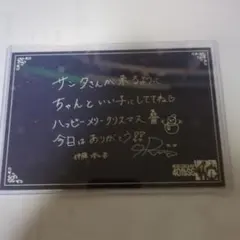 サンタさんが来るように
ちゃんといい子にしててねる
ハッピーメリークリスマス
今日はありがとう!!